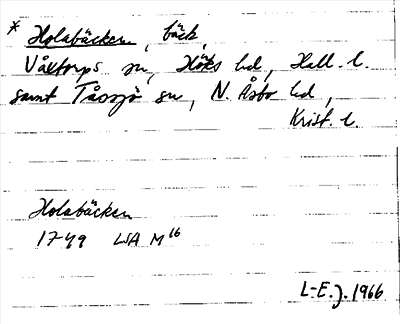 * Holabäcken, bäck,
Våxtorps sn, Höks hd, Hall. l.
samt Tåssjö sn, N. Åsbo hd,
Krist. l.
Holabäcken
1749 LSA M 16
L-E. J. 1966